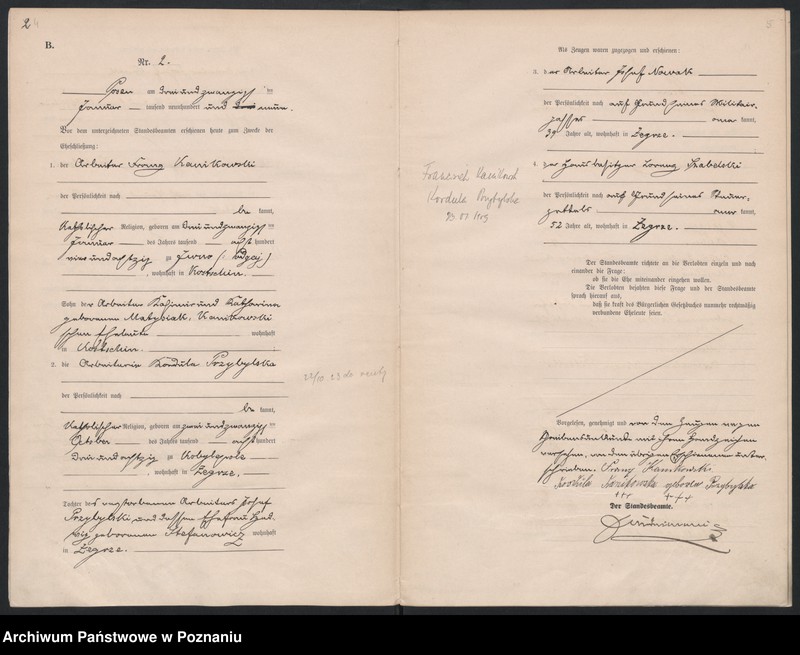 2
B.
Nr. 2.
Posen am dreiundzwanzigsten
Januar tausend neunhundert und neun.
Vor dem unterzeichneten Standesbeamten erschienen heute zum Zwecke der
Eheschließung:
1. der Arbeiter Franz Kanikowski
der Persönlichkeit nach
be kannt,
katholischer Religion, geboren am dreiundzwanzigsten
Januar des Jahres tausend acht hundert
vierundachtzig zu Iwno
, wohnhaft in Kostschin.
Sohn der Arbeiter Kasimir und Katharina
geborenen Matysiak, Kanikowski
schen Eheleute wohnhaft
in Kostschin.
2. die Arbeiterin Kordula Przybylska
der Persönlichkeit nach
be kannt,
katholischer Religion, geboren am zweiundzwanzigsten
October des Jahres tausend acht hundert
dreiundachtzig zu Kobylepole
, wohnhaft in Zegrze.
Tochter des verstorbenen Arbeiters Josef
Przybylski und dessen Ehefrau Hed-
wig geborenen Stefanowicz wohnhaft
in Zegrze.
Als Zeugen waren zugezogen und erschienen:
3. der Arbeiter Josef Nowak
der Persönlichkeit nach auf Grund seines Militair-
passes aner kannt,
39 Jahre alt, wohnhaft in Zegrze.
4. der Hausbesitzer Lorenz
der Persönlichkeit nach auf Grund seines Steuer-
zettels aner kannt,
52 Jahre alt, wohnhaft in Zegrze.
Franciszek Kanikowski
Kordula Przybylska
23.01.1909
Der Standesbeamte richtete an die Verlobten einzeln und nach
einander die Frage:
ob sie die Ehe miteinander eingehen wollen.
Die Verlobten bejahten diese Frage und der Standesbeamte
sprach hierauf aus,
daß sie kraft des Bürgerlichen Gesetzbuchs nunmehr rechtmäßig
verbundene Eheleute seien.
Vorgelesen, genehmigt und von den Zeugen wegen
Schreibensunkunde mit ihren Handzeichen
versehen, von den übrigen Erschienenen unter-
schrieben. Franz Kanikowski
Kordula Kanikowska geboren Przybylska
+++ +++
Der Standesbeamte.
Archiwum Państwowe w Poznaniu